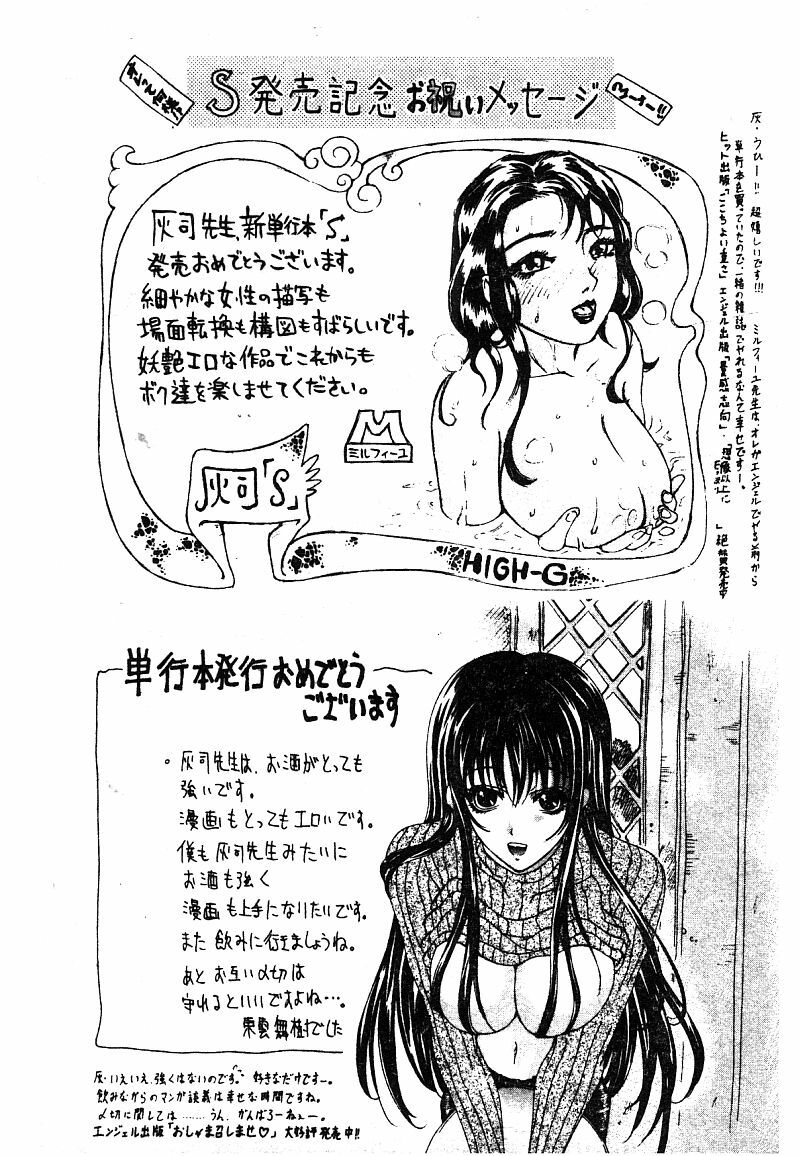 S発売記念お祝いメッセージ
灰司先生、新単行本「S」
発売おめでとうございます。
細やかな女性の描写も
場面転換も構図もすばらしいです。
妖艶エロな作品でこれからも
ボク達を楽しませてください。
M
ミルフィーユ
灰司「S」
HIGH-G
灰・うひー!! 超嬉しいです!!! ミルフィーユ先生は、オレがエンジェルでやる前から
単行本を買っていたので、一緒の雑誌でやれるなんて幸せですー。
ヒット出版「ここちよい重さ」エンジェル出版「量感志向」・「想像以上に
」絶賛発売中
単行本発行おめでとう
ございます
。灰司先生は、お酒がとっても
強いです。
漫画もとってもエロいです。
僕も灰司先生みたいに
お酒も強く
漫画も上手になりたいです。
また飲みに行きましょうね。
あとお互い〆切は
守れるといいですよね…。
東雲舞樹でした
灰・いえいえ、強くはないのです。好きなだけですー。
飲みながらのマンガ談義は幸せな時間ですね。
〆切に関しては………うん、がんばろーねぇー。
エンジェル出版「おしゃま召しませ♡」大好評発売中!!